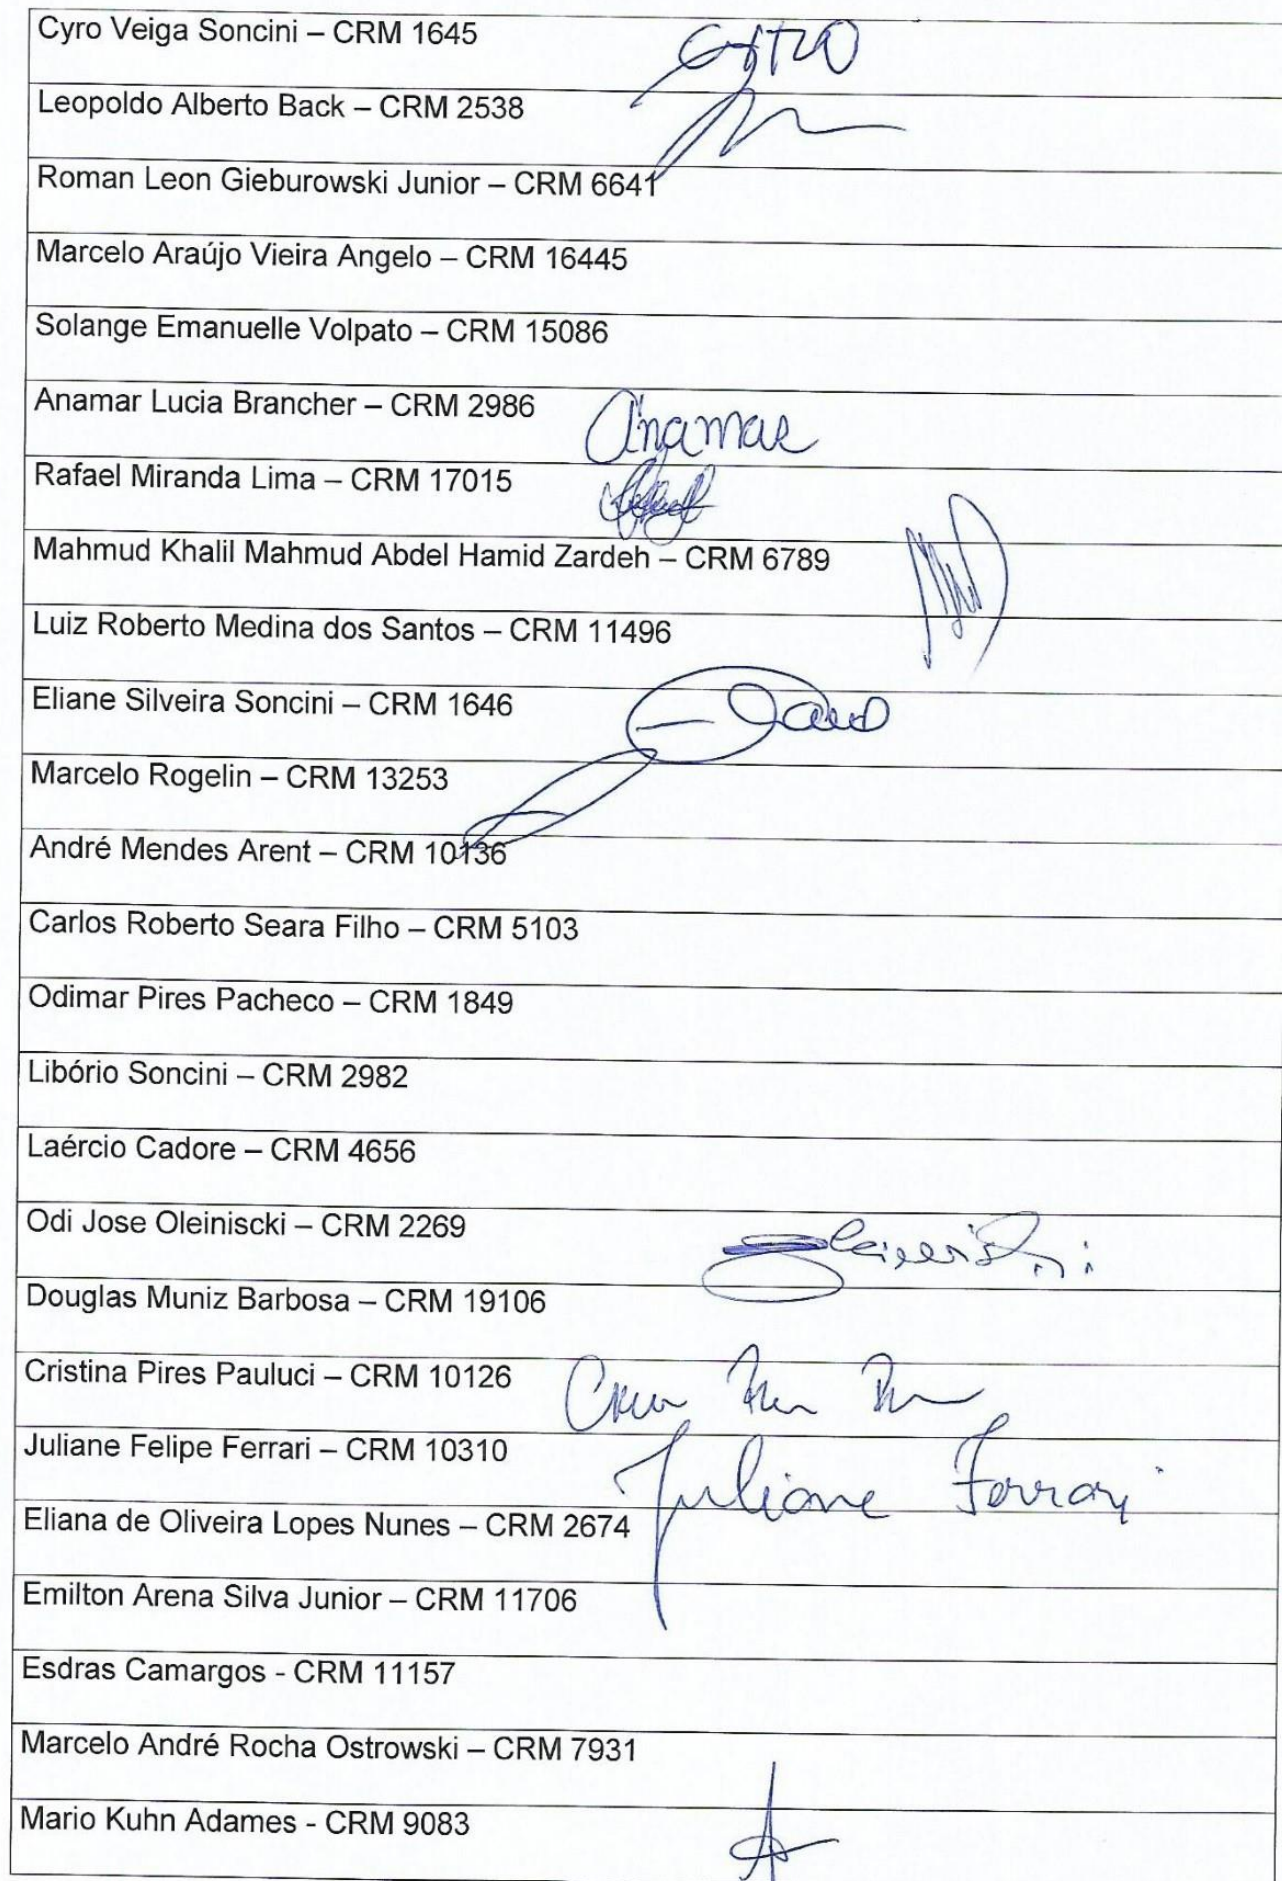 Cyro Veiga Soncini – CRM 1645
Leopoldo Alberto Back – CRM 2538
Roman Leon Gieburowski Junior – CRM 6641
Marcelo Araújo Vieira Angelo – CRM 16445
Solange Emanuelle Volpato – CRM 15086
Anamar Lucia Brancher – CRM 2986 Anamar
Rafael Miranda Lima – CRM 17015
Mahmud Khalil Mahmud Abdel Hamid Zardeh – CRM 6789
Luiz Roberto Medina dos Santos – CRM 11496
Eliane Silveira Soncini – CRM 1646
Marcelo Rogelin – CRM 13253
André Mendes Arent – CRM 10136
Carlos Roberto Seara Filho – CRM 5103
Odimar Pires Pacheco – CRM 1849
Libório Soncini – CRM 2982
Laércio Cadore – CRM 4656
Odi Jose Oleiniscki – CRM 2269
Douglas Muniz Barbosa – CRM 19106
Cristina Pires Pauluci – CRM 10126
Juliane Felipe Ferrari – CRM 10310 Juliane Ferrari
Eliana de Oliveira Lopes Nunes – CRM 2674
Emilton Arena Silva Junior – CRM 11706
Esdras Camargos - CRM 11157
Marcelo André Rocha Ostrowski – CRM 7931
Mario Kuhn Adames - CRM 9083